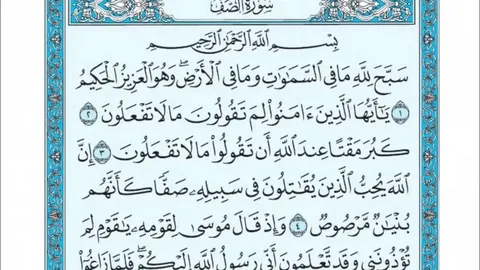 سُورَةُ الصَّفِّ
بِسْمِ اللَّهِ الرَّحْمَٰنِ الرَّحِيمِ
سَبَّحَ لِلَّهِ مَا فِي السَّمَٰوَٰتِ وَمَا فِي الْأَرْضِ ۖ وَهُوَ الْعَزِيزُ الْحَكِيمُ
١ يَٰٓأَيُّهَا الَّذِينَ ءَامَنُوا لِمَ تَقُولُونَ مَا لَا تَفْعَلُونَ ٢
كَبُرَ مَقْتًا عِندَ اللَّهِ أَن تَقُولُوا مَا لَا تَفْعَلُونَ ٣ إِنَّ
اللَّهَ يُحِبُّ الَّذِينَ يُقَٰتِلُونَ فِي سَبِيلِهِ صَفًّا كَأَنَّهُم
بُنْيَٰنٌ مَّرْصُوصٌ ٤ وَإِذْ قَالَ مُوسَىٰ لِقَوْمِهِ يَٰقَوْمِ لِمَ
تُؤْذُونَنِي وَقَد تَّعْلَمُونَ أَنِّي رَسُولُ اللَّهِ إِلَيْكُمْ ۖ فَلَمَّا زَاغُوٓا